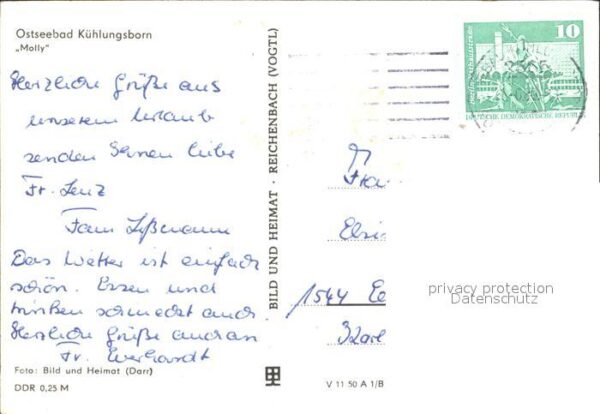 Ostseebad Kühlungsborn
„Molly"
Herzliche Grüße aus
unserem Urlaub
senden Ihnen liebe
Fr. Lenz
Fam
Das Wetter ist einfach
schön. Essen und
trinken schmeckt auch.
Herzliche Grüße an
Fr. Everhardt
Foto: Bild und Heimat (Darr)
DDR 0,25 M
BILD UND HEIMAT · REICHENBACH (VOGTL)
V 11 50 A 1/B
10
DEUTSCHE DEMOKRATISCHE REPUBLIK
2565
1544
Karl
privacy protection
Datenschutz